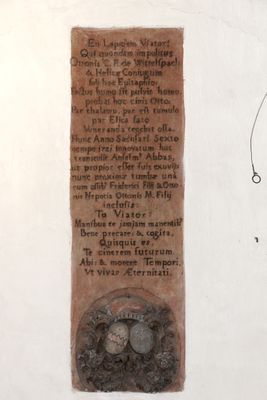 En Lapidem Viator!
Qui quondam impolitus
Ottonis C. P. de Wittelspach
& Helicæ Coniugum
fuit hoc Epitaphio:
Factus humo fit pulvis homo,
probat hoc cinis Otto,
Par thalamo, par est tumulo
par Elica fato
Veneranda tenebit ossa.
Hunc Anno Sæculari Sexto
innovatum huc
Anselm9 Abbas,
ut propior esset suis exuviis
nunc proxima tumba una
cum ossib9 Friderici Filii & Otto-
nis Nepotis Ottonis M. Filij
inclusis:
Tu Viator!
Manibus te jamjam manentib9
Bene precare: & cogita,
Quisquis es,
Te cinerem futurum.
Abi: & morere Tempori,
Ut vivas Æternitati.